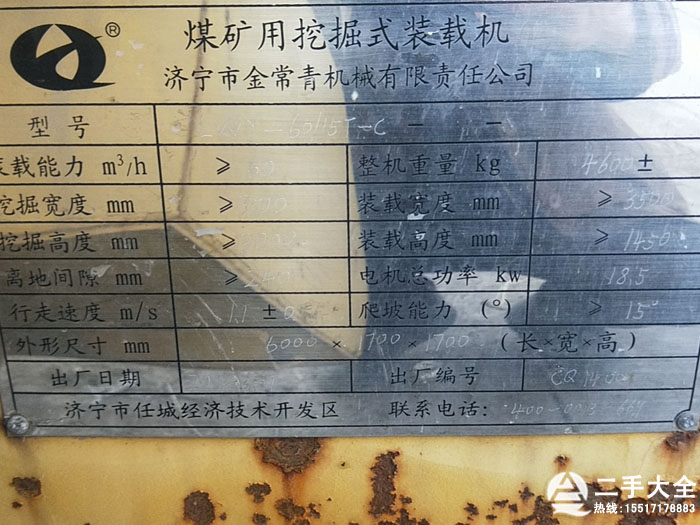 ®
煤矿用挖掘式装载机
济宁市金常青机械有限责任公司
型号 -60/15T-C - -
装载能力 m³/h ≥ 60 整机重量 kg 4600 ±
挖掘宽度 mm ≥ 装载宽度 mm ≥ 3500
挖掘高度 mm ≥ 装载高度 mm ≥ 1450
离地间隙 mm ≥ 电机总功率 kw 18.5
行走速度 m/s 1.1 ± 0 爬坡能力 (°) ≥ 15°
外形尺寸 mm 6000 × 1700 × 1700 (长×宽×高)
出厂日期 出厂编号
济宁市任城经济技术开发区 联系电话: 400-
二手大全
热线:15517178883